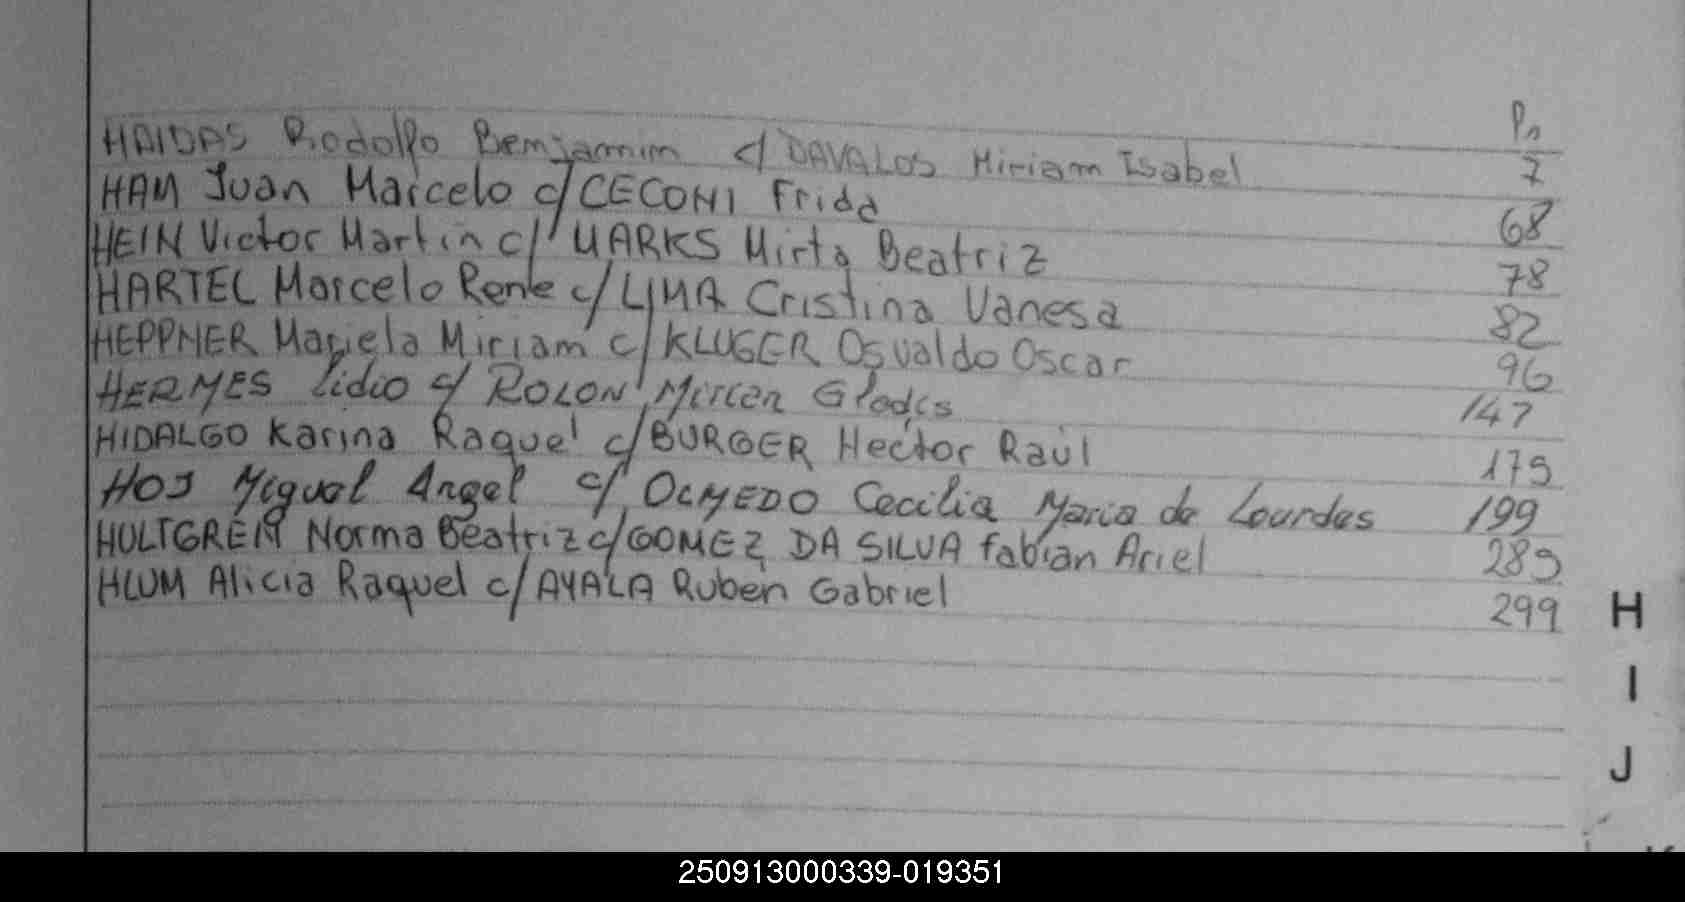 Pn
HAIDAS Rodolfo Benjamin c/ DAVALOS Miriam Isabel 7
HAM Juan Marcelo c/ CECONI Frida 68
HEIN Victor Martin c/ MARKS Mirta Beatriz 78
HARTEL Marcelo Rene c/ LIMA Cristina Vanesa 82
HEPPNER Mariela Miriam c/ KLUGER Osvaldo Oscar 96
HERMES Lidio c/ ROLON Mirian Gladis 147
HIDALGO Karina Raquel c/ BURGER Hector Raúl 175
HOJ Miguel Angel c/ OLMEDO Cecilia Maria de Lourdes 199
HULTGREN Norma Beatriz c/ GOMEZ DA SILVA fabian Ariel 289
HLUM Alicia Raquel c/ AYALA Ruben Gabriel 299
H
I
J
250913000339-019351